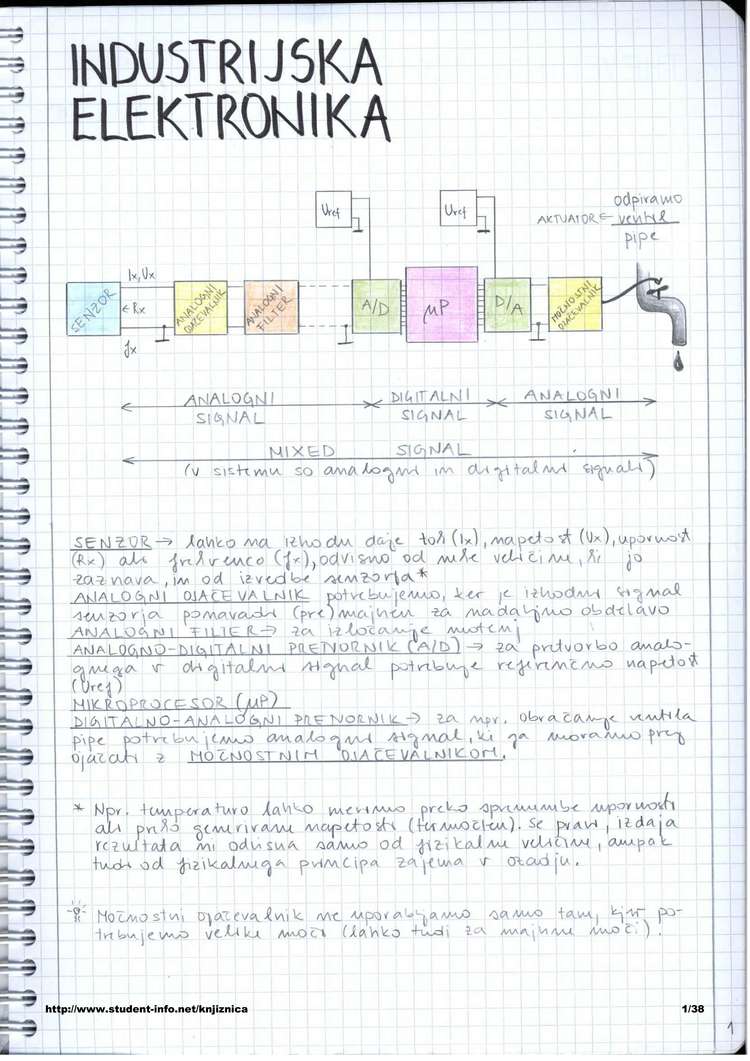 INDUSTRIJSKA
ELEKTRONIKA
Uref
Uref
odpiramo
AKTUATOR ← ventil
pipe
Ix, Ux
SENZOR
← Rx
fx
ANALOGNI
OJAČEVALNIK
ANALOGNI
FILTER
A/D
μP
D/A
MOČNOSTNI
OJAČEVALNIK
ANALOGNI
SIGNAL
DIGITALNI
SIGNAL
ANALOGNI
SIGNAL
MIXED SIGNAL
(v sistemu so analogni in digitalni signali)
SENZOR → lahko na izhodu daje tok (Ix), napetost (Ux), upornost
(Rx) ali frekvenco (fx), odvisno od merke veličine, ki jo
zaznava, in od izvedbe senzorja*
ANALOGNI OJAČEVALNIK potrebujemo, ker je izhodni signal
senzorja ponavadi (pre)majhen za nadaljno obdelavo
ANALOGNI FILTER → za izločanje motenj
ANALOGNO-DIGITALNI PRETVORNIK (A/D) → za pretvorbo analo-
gnega v digitalni signal potrebuje referenčno napetost
(Uref)
MIKROPROCESOR (μP)
DIGITALNO-ANALOGNI PRETVORNIK → za npr. obračanje ventila
pipe potrebujemo analogni signal, ki ga moramo prej
ojačati z MOČNOSTNIM OJAČEVALNIKOM.
* Npr. temperaturo lahko merimo preko spremembe upornosti
ali preko generirane napetosti (termočlen). Se pravi, izdaja
rezultata ni odvisna samo od fizikalne veličine, ampak
tudi od fizikalnega principa zajema v ozadju.
Močnostni ojačevalnik ne uporabljamo samo tam, kjer po-
trebujemo velike moči (lahko tudi za majhne moči).
http://www.student-info.net/knjiznica
1/38
1